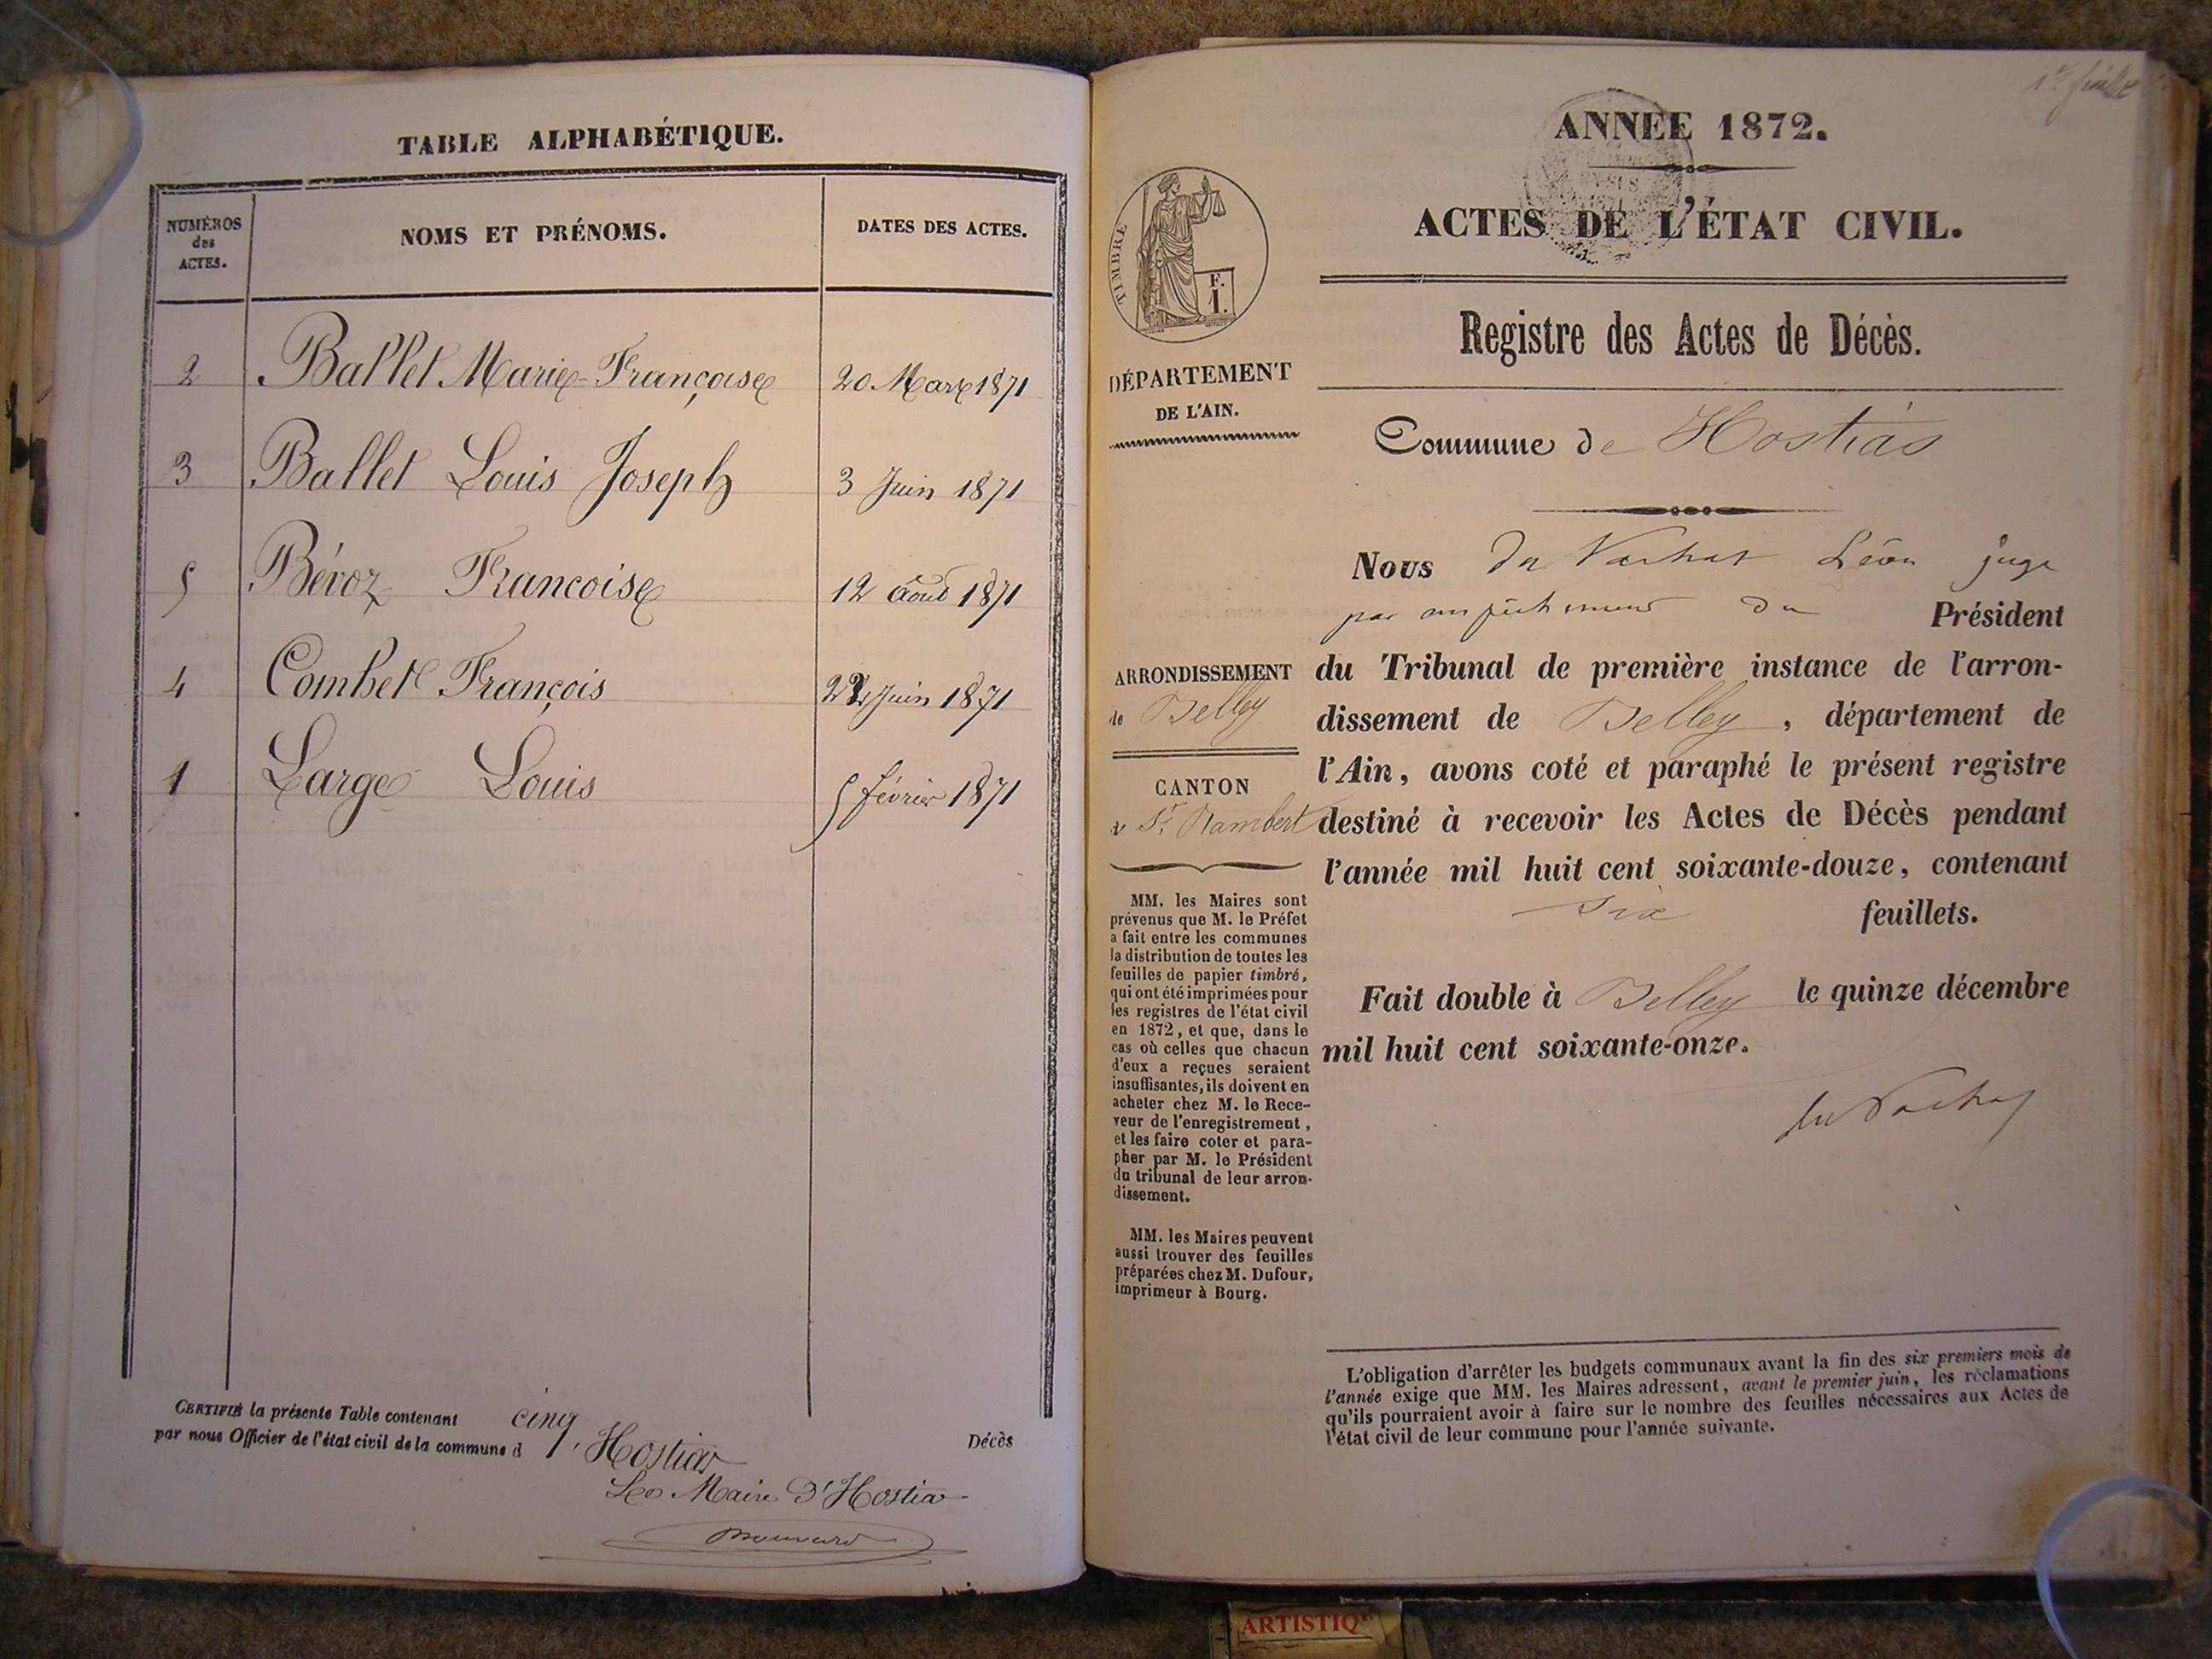 TABLE ALPHABÉTIQUE.
NUMÉROS des ACTES.
NOMS ET PRÉNOMS.
DATES DES ACTES.
2 Ballet Marie-Françoise 20 Mars 1871
3 Ballet Louis Joseph 3 Juin 1871
5 Bévoz Francoise 12 Août 1871
4 Combet François 22 Juin 1871
1 Large Louis 5 février 1871
CERTIFIÉ la présente Table contenant cinq Décès
par nous Officier de l'état civil de la commune d'Hostias
Le Maire d'Hostias
Bouvard
1er feuillet
ANNÉE 1872.
ACTES DE L'ÉTAT CIVIL.
Registre des Actes de Décès.
Commune de Hostias
TIMBRE
F.
1.
DÉPARTEMENT
DE L'AIN.
ARRONDISSEMENT
de Belley
CANTON
de St. Rambert
MM. les Maires sont
prévenus que M. le Préfet
a fait entre les communes
la distribution de toutes les
feuilles de papier timbré,
qui ont été imprimées pour
les registres de l'état civil
en 1872, et que, dans le
cas où celles que chacun
d'eux a reçues seraient
insuffisantes, ils doivent en
acheter chez M. le Rece-
veur de l'enregistrement,
et les faire coter et para-
pher par M. le Président
du tribunal de leur arron-
dissement.
MM. les Maires peuvent
aussi trouver des feuilles
préparées chez M. Dufour,
imprimeur à Bourg.
Nous Du Vachat Léon juge
par empêchement du Président
du Tribunal de première instance de l'arron-
dissement de Belley, département de
l'Ain, avons coté et paraphé le présent registre
destiné à recevoir les Actes de Décès pendant
l'année mil huit cent soixante-douze, contenant
six feuillets.
Fait double à Belley le quinze décembre
mil huit cent soixante-onze.
du Vachat
L'obligation d'arrêter les budgets communaux avant la fin des six premiers mois de
l'année exige que MM. les Maires adressent, avant le premier juin, les réclamations
qu'ils pourraient avoir à faire sur le nombre des feuilles nécessaires aux Actes de
l'état civil de leur commune pour l'année suivante.